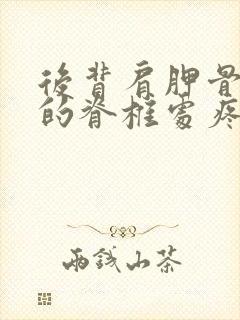 後背肩胛骨
的脊椎處疼
兩錢山茶